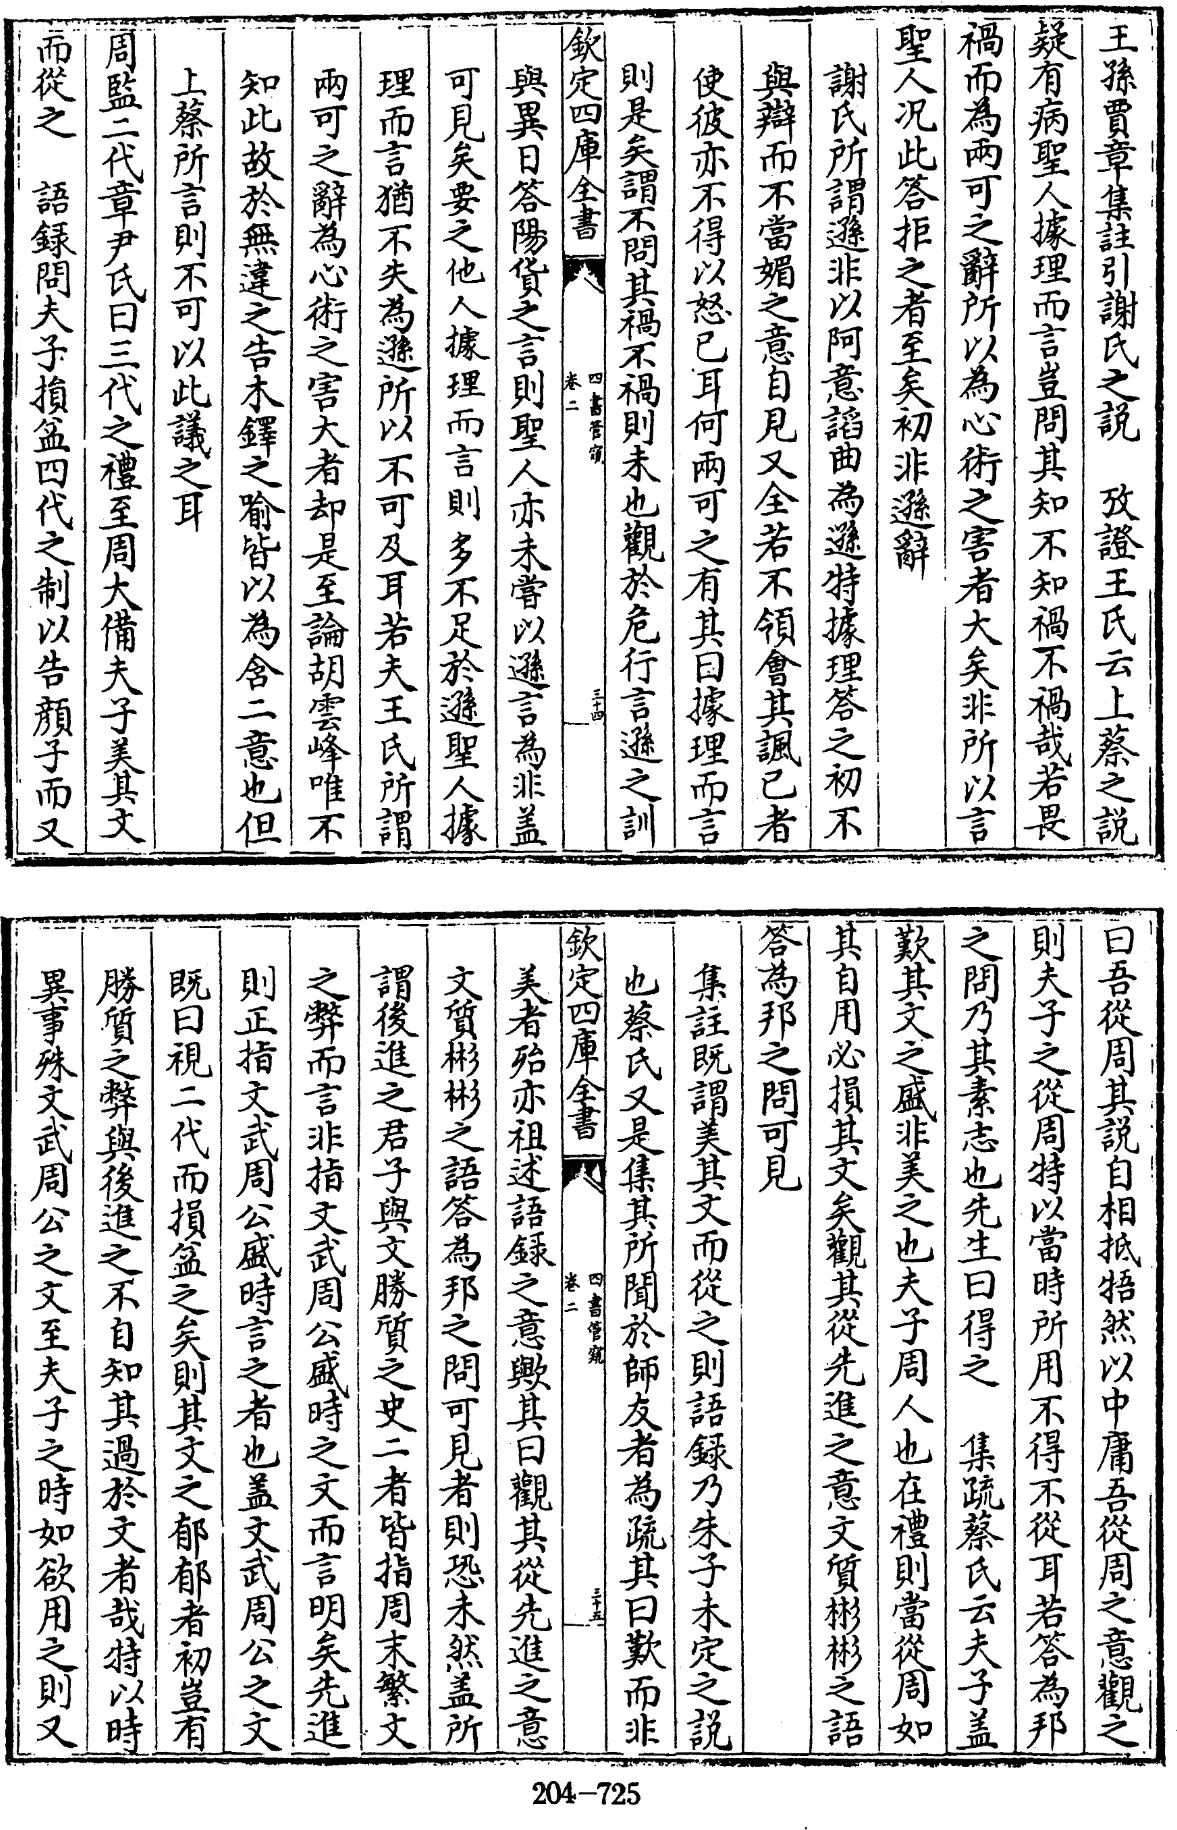 王孫賈章集註引謝氏之説　攷證王氏云上蔡之説
疑有病聖人據理而言豈問其知不知禍不禍哉若畏
禍而為兩可之辭所以為心術之害者大矣非所以言
聖人况此答拒之者至矣初非遜辭
謝氏所謂遜非以阿意謟曲為遜特據理答之初不
與辯而不當媚之意自見又全若不領會其諷已者
使彼亦不得以怒已耳何兩可之有其曰據理而言
則是矣謂不問其禍不禍則未也觀於危行言遜之訓
欽定四庫全書
四書管窺
卷二
三十四
與異日答陽貨之言則聖人亦未嘗以遜言為非盖
可見矣要之他人據理而言則多不足於遜聖人據
理而言猶不失為遜所以不可及耳若夫王氏所謂
兩可之辭為心術之害大者却是至論胡雲峰唯不
知此故於無違之告木鐸之喻皆以為含二意也但
上蔡所言則不可以此議之耳
周監二代章尹氏曰三代之禮至周大備夫子美其文
而從之　語録問夫子損益四代之制以告顔子而又
曰吾從周其説自相抵牾然以中庸吾從周之意觀之
則夫子之從周特以當時所用不得不從耳若答為邦
之問乃其素志也先生曰得之　集疏蔡氏云夫子盖
歎其文之盛非美之也夫子周人也在禮則當從周如
其自用必損其文矣觀其從先進之意文質彬彬之語
答為邦之問可見
集註既謂美其文而從之則語録乃朱子未定之説
也蔡氏又是集其所聞於師友者為疏其曰歎而非
欽定四庫全書
四書管窺
卷二
三十五
美者殆亦祖述語録之意歟其曰觀其從先進之意
文質彬彬之語答為邦之問可見者則恐未然盖所
謂後進之君子與文勝質之史二者皆指周末繁文
之弊而言非指文武周公盛時之文而言明矣先進
則正指文武周公盛時言之者也盖文武周公之文
既曰視二代而損益之矣則其文之郁郁者初豈有
勝質之弊與後進之不自知其過於文者哉特以時
異事殊文武周公之文至夫子之時如欲用之則又
204-725